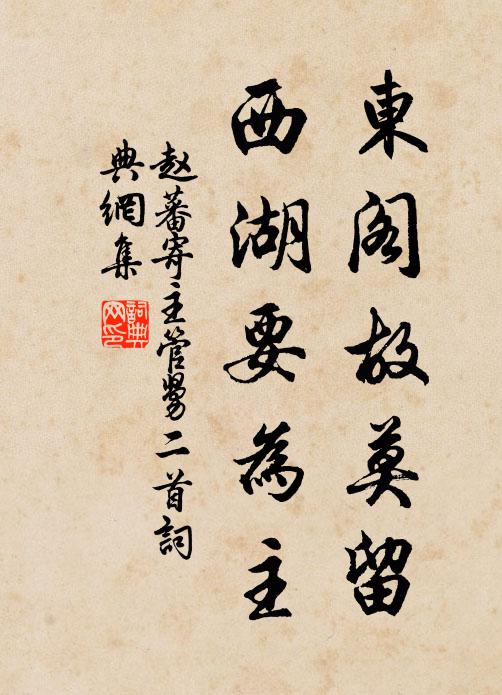 東閣故莫留
西湖要為主
赵蕃寄主管舅二首詞
典網集
詞典
网印